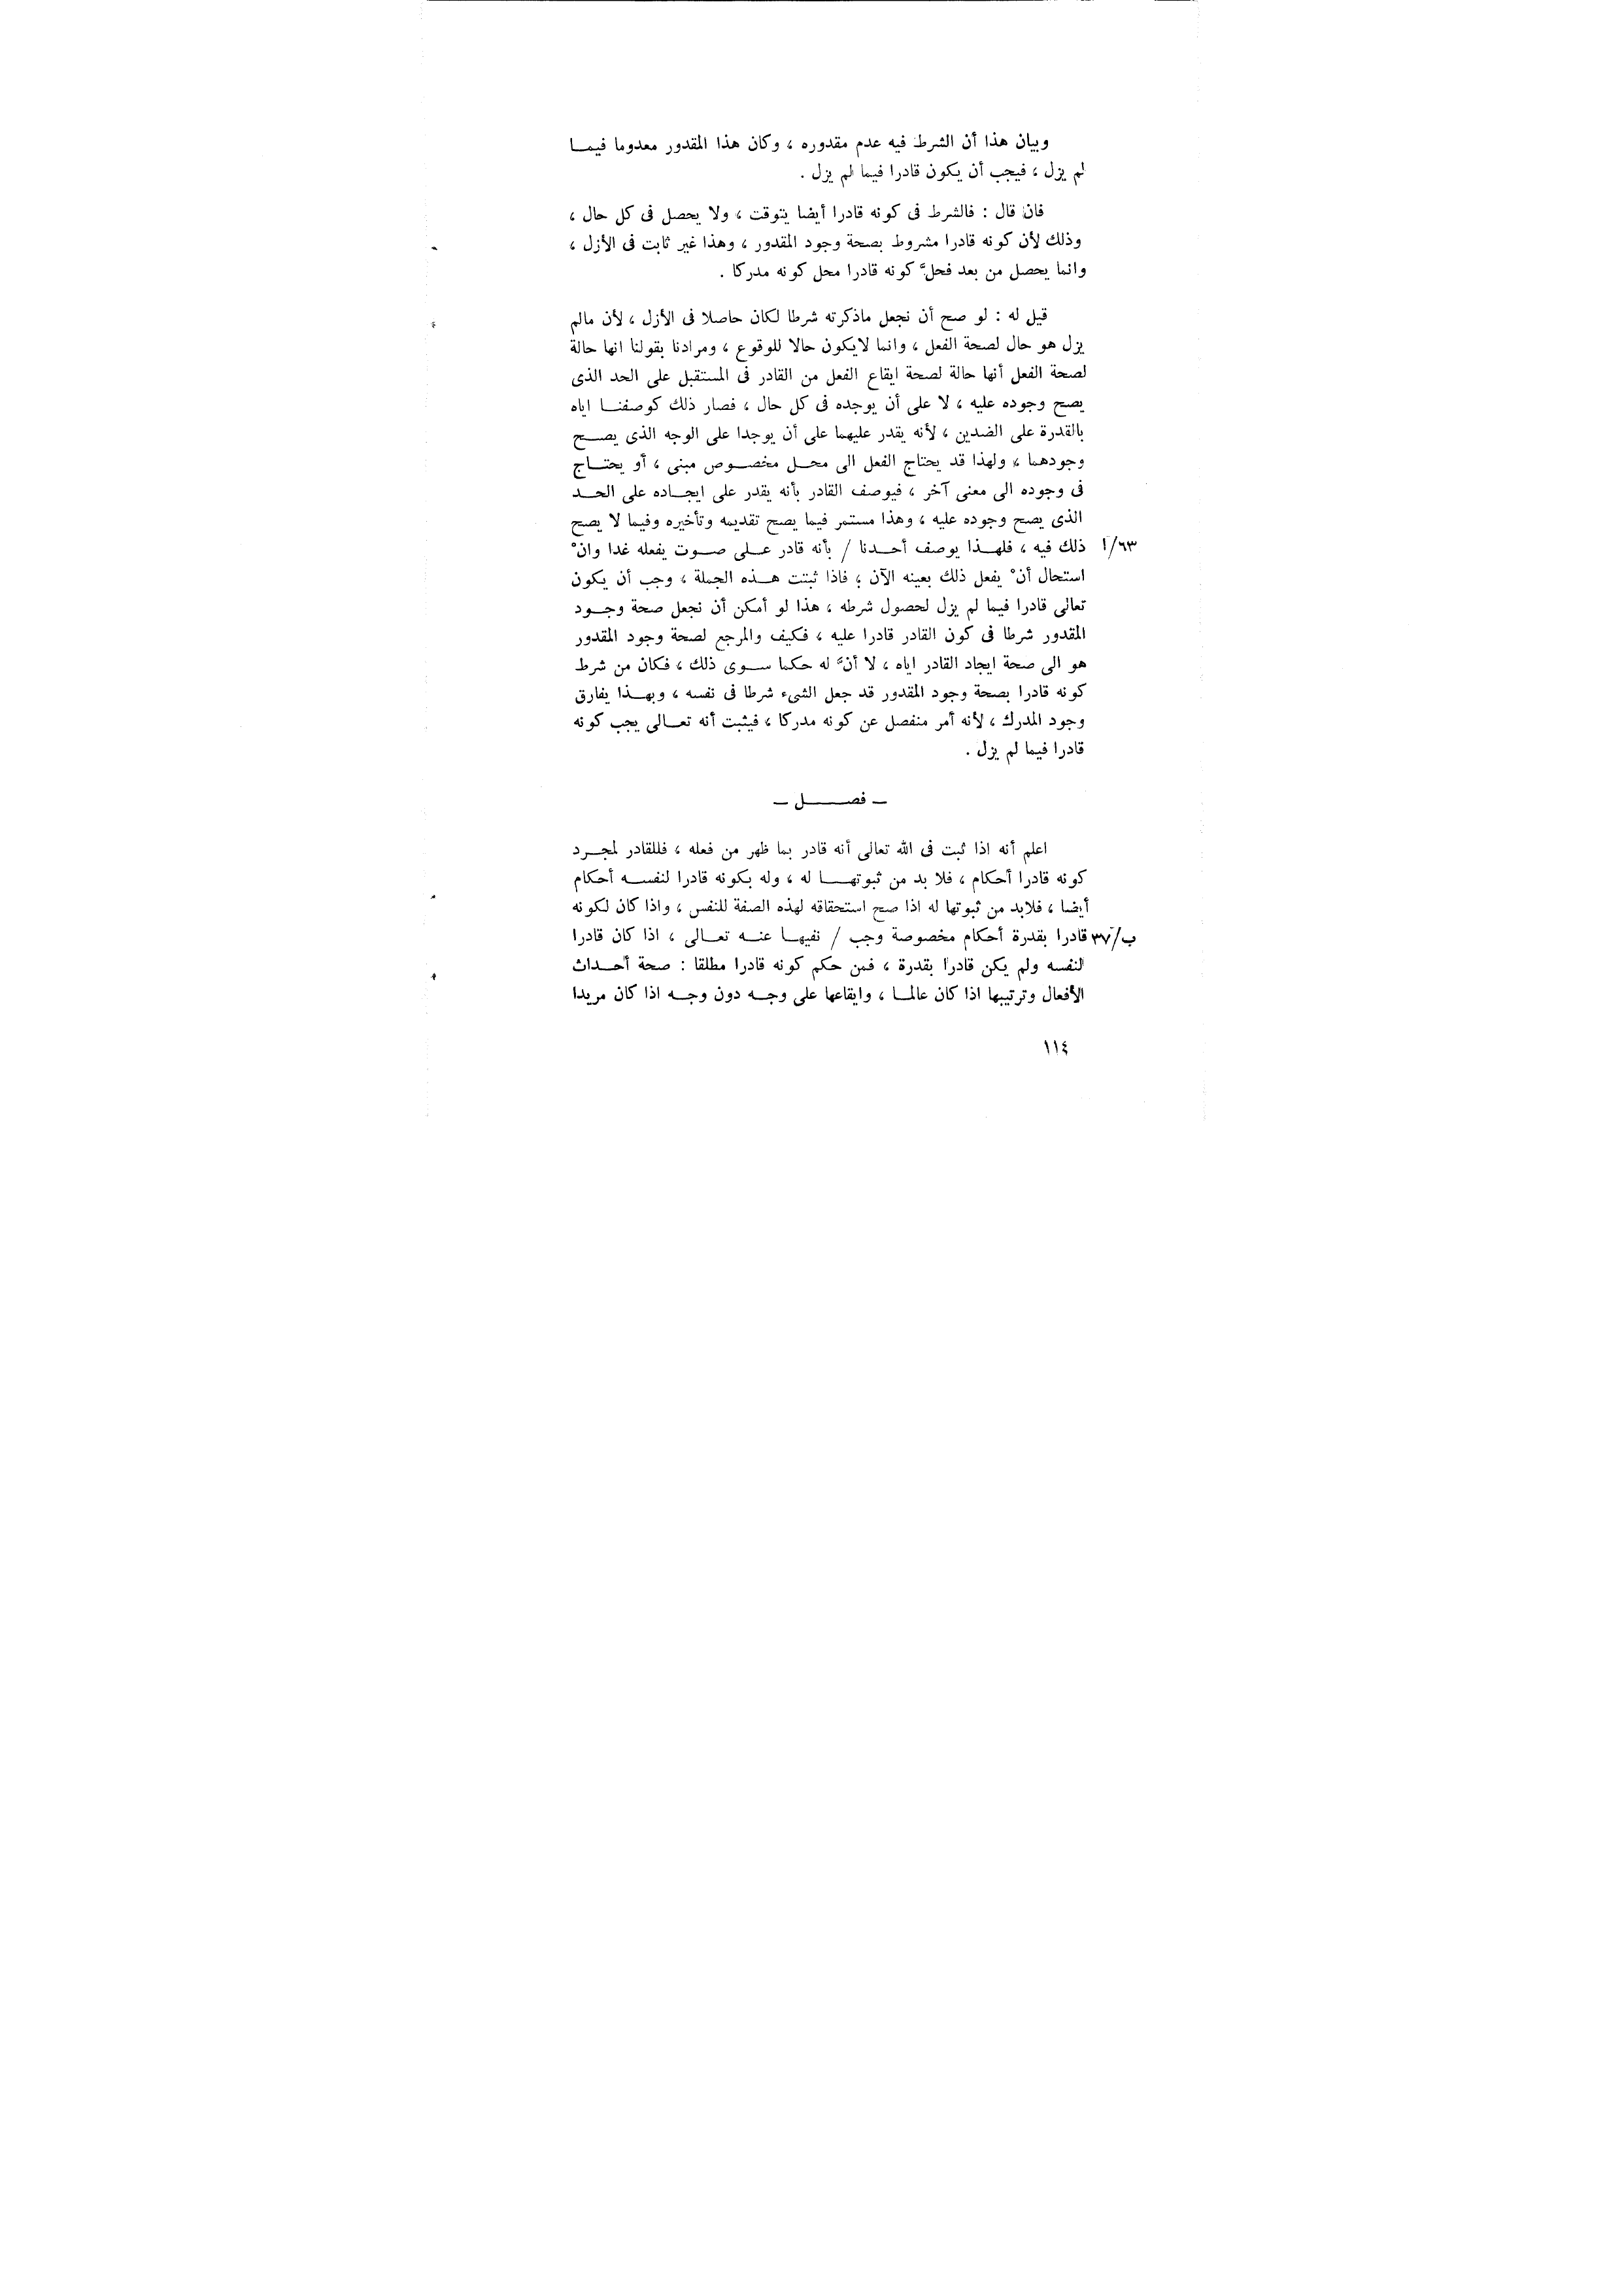 وبيان هذا أن الشرط فيه عدم مقدوره ، وكان هذا المقدور معدوما فيما
لم يزل ، فيجب أن يكون قادرا فيما لم يزل .
فان قال : فالشرط فى كونه قادرا أيضا يتوقت ، ولا يحصل فى كل حال ،
وذلك لأن كونه قادرا مشروط بصحة وجود المقدور ، وهذا غير ثابت فى الأزل ،
وانما يحصل من بعد فحلَّ كونه قادرا محل كونه مدركا .
قيل له : لو صح أن نجعل ماذكرته شرطا لكان حاصلا فى الأزل ، لأن مالم
يزل هو حال لصحة الفعل ، وانما لايكون حالا للوقوع ، ومرادنا بقولنا انها حالة
لصحة الفعل أنها حالة لصحة ايقاع الفعل من القادر فى المستقبل على الحد الذى
يصح وجوده عليه ، لا على أن يوجده فى كل حال ، فصار ذلك كوصفنا اياه
بالقدرة على الضدين ، لأنه يقدر عليهما على أن يوجدا على الوجه الذى يصح
وجودهما ، ولهذا قد يحتاج الفعل الى محل مخصوص مبنى ، أو يحتاج
فى وجوده الى معنى آخر ، فيوصف القادر بأنه يقدر على ايجاده على الحد
الذى يصح وجوده عليه ، وهذا مستمر فيما يصح تقديمه وتأخيره وفيما لا يصح
٦٣/ا ذلك فيه ، فلهذا يوصف أحدنا / بأنه قادر على صوت يفعله غدا وانْ
استحال أنْ يفعل ذلك بعينه الآن ؛ فاذا ثبتت هذه الجملة ، وجب أن يكون
تعالى قادرا فيما لم يزل لحصول شرطه ، هذا لو أمكن أن نجعل صحة وجود
المقدور شرطا فى كون القادر قادرا عليه ، فكيف والمرجع لصحة وجود المقدور
هو الى صحة ايجاد القادر اياه ، لا أنَّ له حكما سوى ذلك ، فكان من شرط
كونه قادرا بصحة وجود المقدور قد جعل الشىء شرطا فى نفسه ، وبهذا يفارق
وجود المدرك ، لأنه أمر منفصل عن كونه مدركا ، فيثبت أنه تعالى يجب كونه
قادرا فيما لم يزل .
– فصل –
اعلم أنه اذا ثبت فى الله تعالى أنه قادر بما ظهر من فعله ، فللقادر لمجرد
كونه قادرا أحكام ، فلا بد من ثبوتها له ، وله بكونه قادرا لنفسه أحكام
أيضا ، فلابد من ثبوتها له اذا صح استحقاقه لهذه الصفة للنفس ، واذا كان لكونه
ب/٣٧ قادرا بقدرة أحكام مخصوصة وجب / نفيها عنه تعالى ، اذا كان قادرا
لنفسه ولم يكن قادرا بقدرة ، فمن حكم كونه قادرا مطلقا : صحة أحداث
الأفعال وترتيبها اذا كان عالما ، وايقاعها على وجه دون وجه اذا كان مريدا
١١٤